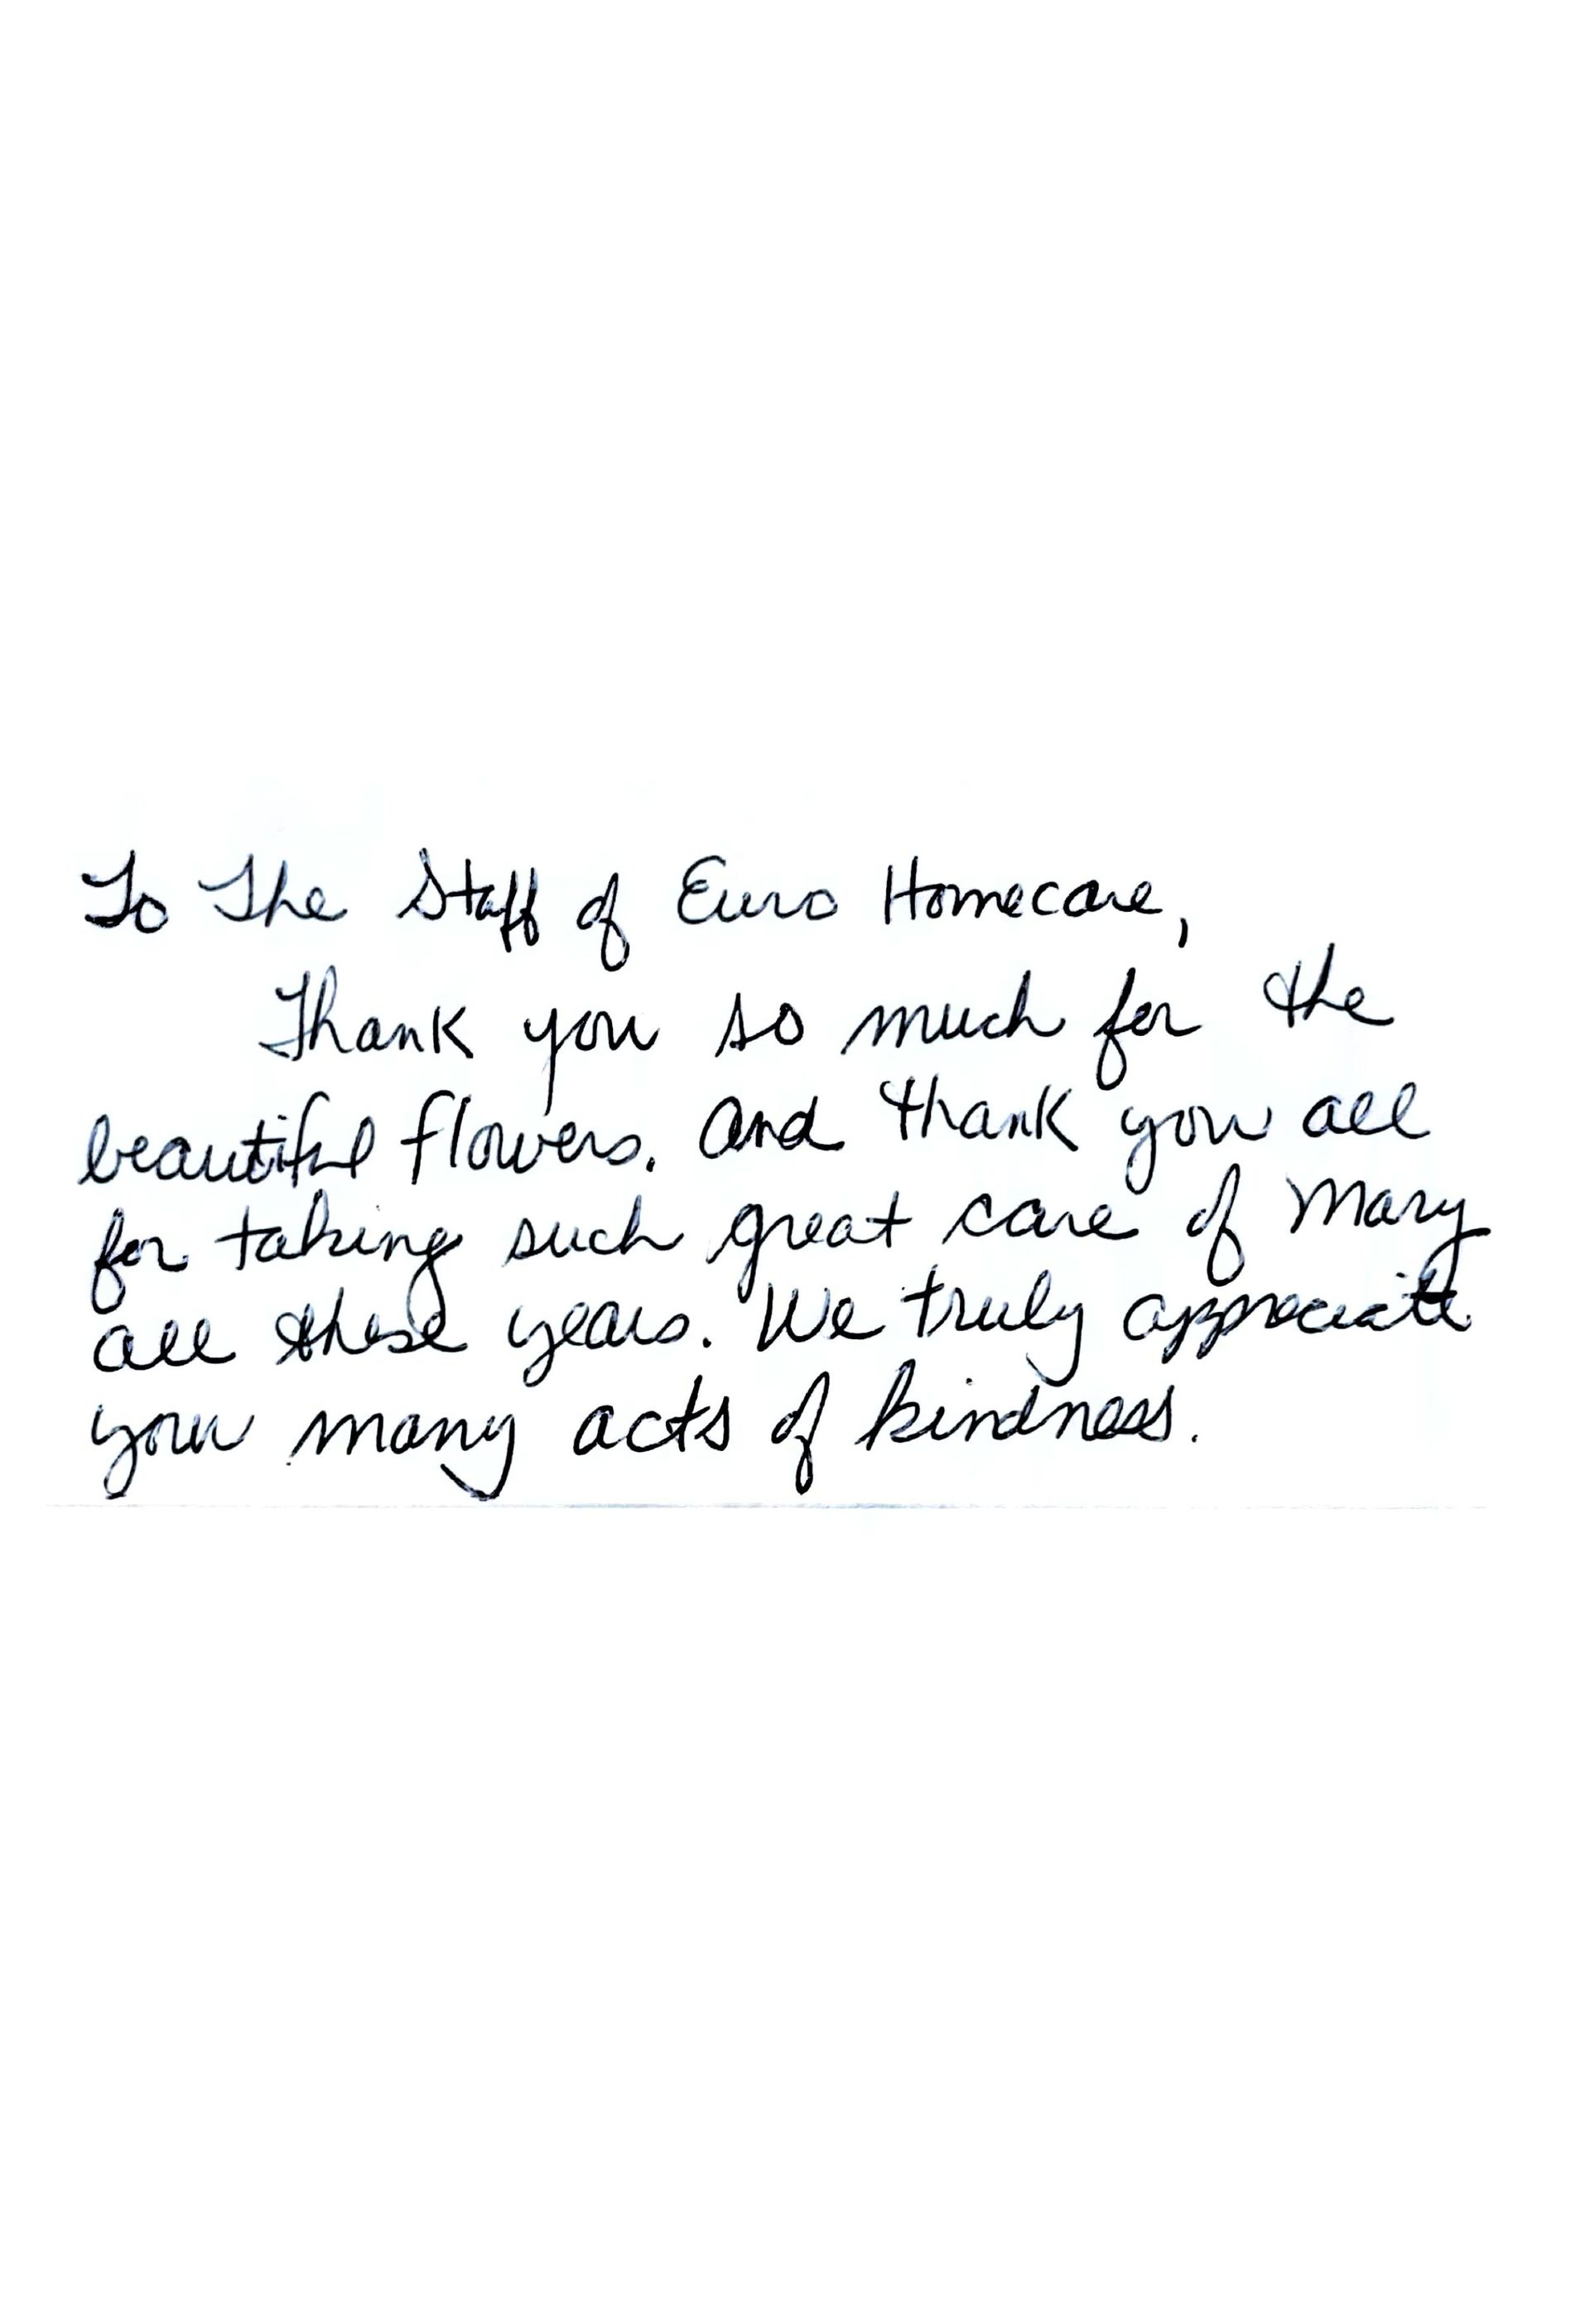 To The Staff of Euro Homecare,
Thank you so much for the
beautiful flowers. And thank you all
for taking such great care of Mary
all these years. We truly appreciate
your many acts of kindness.